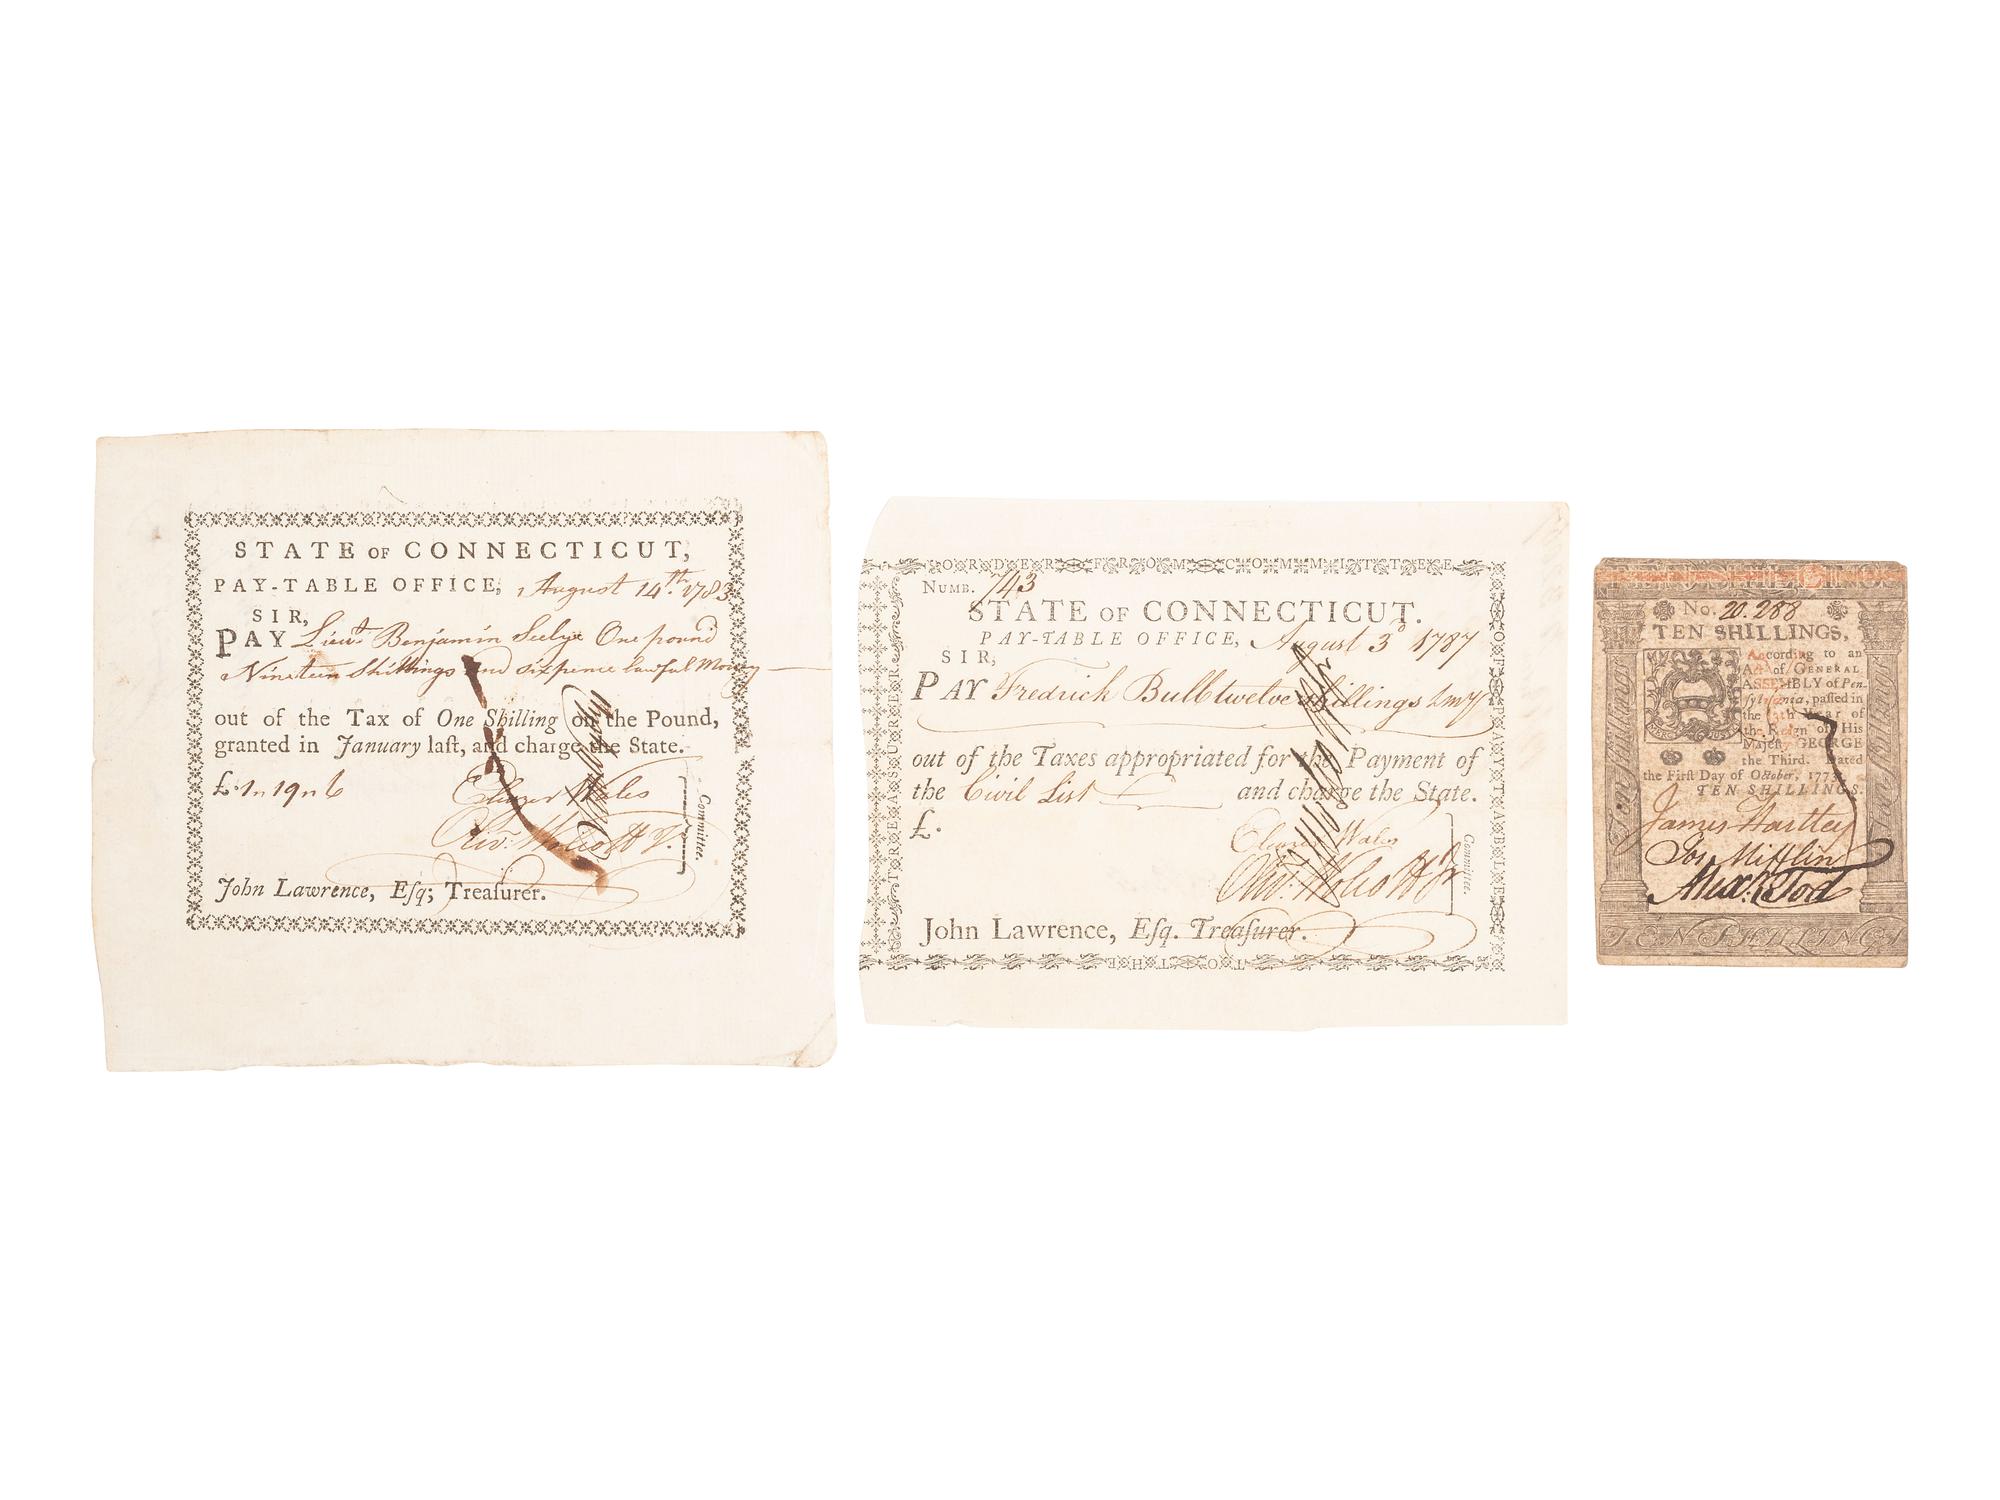 STATE OF CONNECTICUT,
PAY-TABLE OFFICE, August 14th 1783
SIR,
PAY Lieut. Benjamin Seelye One pound
Nineteen Shillings and sixpence lawful Money
out of the Tax of One Shilling on the Pound,
granted in January last, and charge the State.
£. 1 19 6
Eleazer Wales
Olivr. Wolcott Jr.
Committee.
John Lawrence, Esq; Treasurer.
ORDER FROM COMMITTEE
OF PAY TABLE
TO THE
TREASURER
NUMB. 743
STATE OF CONNECTICUT.
PAY-TABLE OFFICE, August 3d 1787
SIR,
PAY Fredrick Bull twelve shillings Lmy
out of the Taxes appropriated for the Payment of
the Civil List and charge the State.
£.
Eleazer Wales
Olivr. Wolcott Jr
Committee.
John Lawrence, Esq. Treasurer.
TEN SHILLINGS
No. 20.288
TEN SHILLINGS.
According to an
Act of GENERAL
ASSEMBLY of Pen-
sylvania, passed in
the 13th Year of
the Reign of His
Majesty GEORGE
the Third. Dated
the First Day of October, 1773.
TEN SHILLINGS.
James Hartley
Jos Mifflin
Alexr. Tod
Ten Shillings
Ten Shillings
TEN SHILLINGS